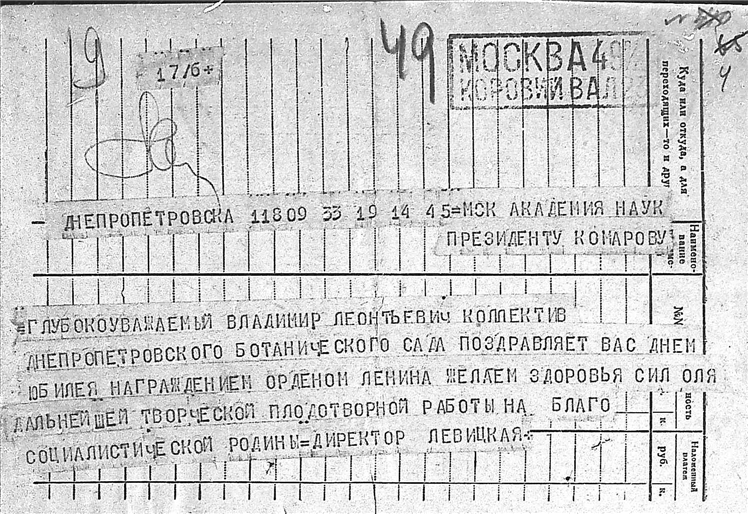 19
49
17/6+
МОСКВА 49
КОРОВИЙ ВАЛ
4
Куда или откуда, а для
переходящих—то и дру
ДНЕПРОПЕТРОВСКА 11809 33 19 14 45=МСК АКАДЕМИЯ НАУК
ПРЕЗИДЕНТУ КОМАРОВУ
Наимено-
вание
=ГЛУБОКОУВАЖАЕМЫЙ ВЛАДИМИР ЛЕОНТЬЕВИЧ КОЛЛЕКТИВ
ДНЕПРОПЕТРОВСКОГО БОТАНИЧЕСКОГО САДА ПОЗДРАВЛЯЕТ ВАС ДНЕМ
ЮБИЛЕЯ НАГРАЖДЕНИЕМ ОРДЕНОМ ЛЕНИНА ЖЕЛАЕМ ЗДОРОВЬЯ СИЛ ОЛЯ
ДАЛЬНЕЙШЕЙ ТВОРЧЕСКОЙ ПЛОДОТВОРНОЙ РАБОТЫ НА БЛАГО
СОЦИАЛИСТИЧЕСКОЙ РОДИНЫ=ДИРЕКТОР ЛЕВИЦКАЯ+
№№
ность
к.
Наложенный
платеж
руб.
к.